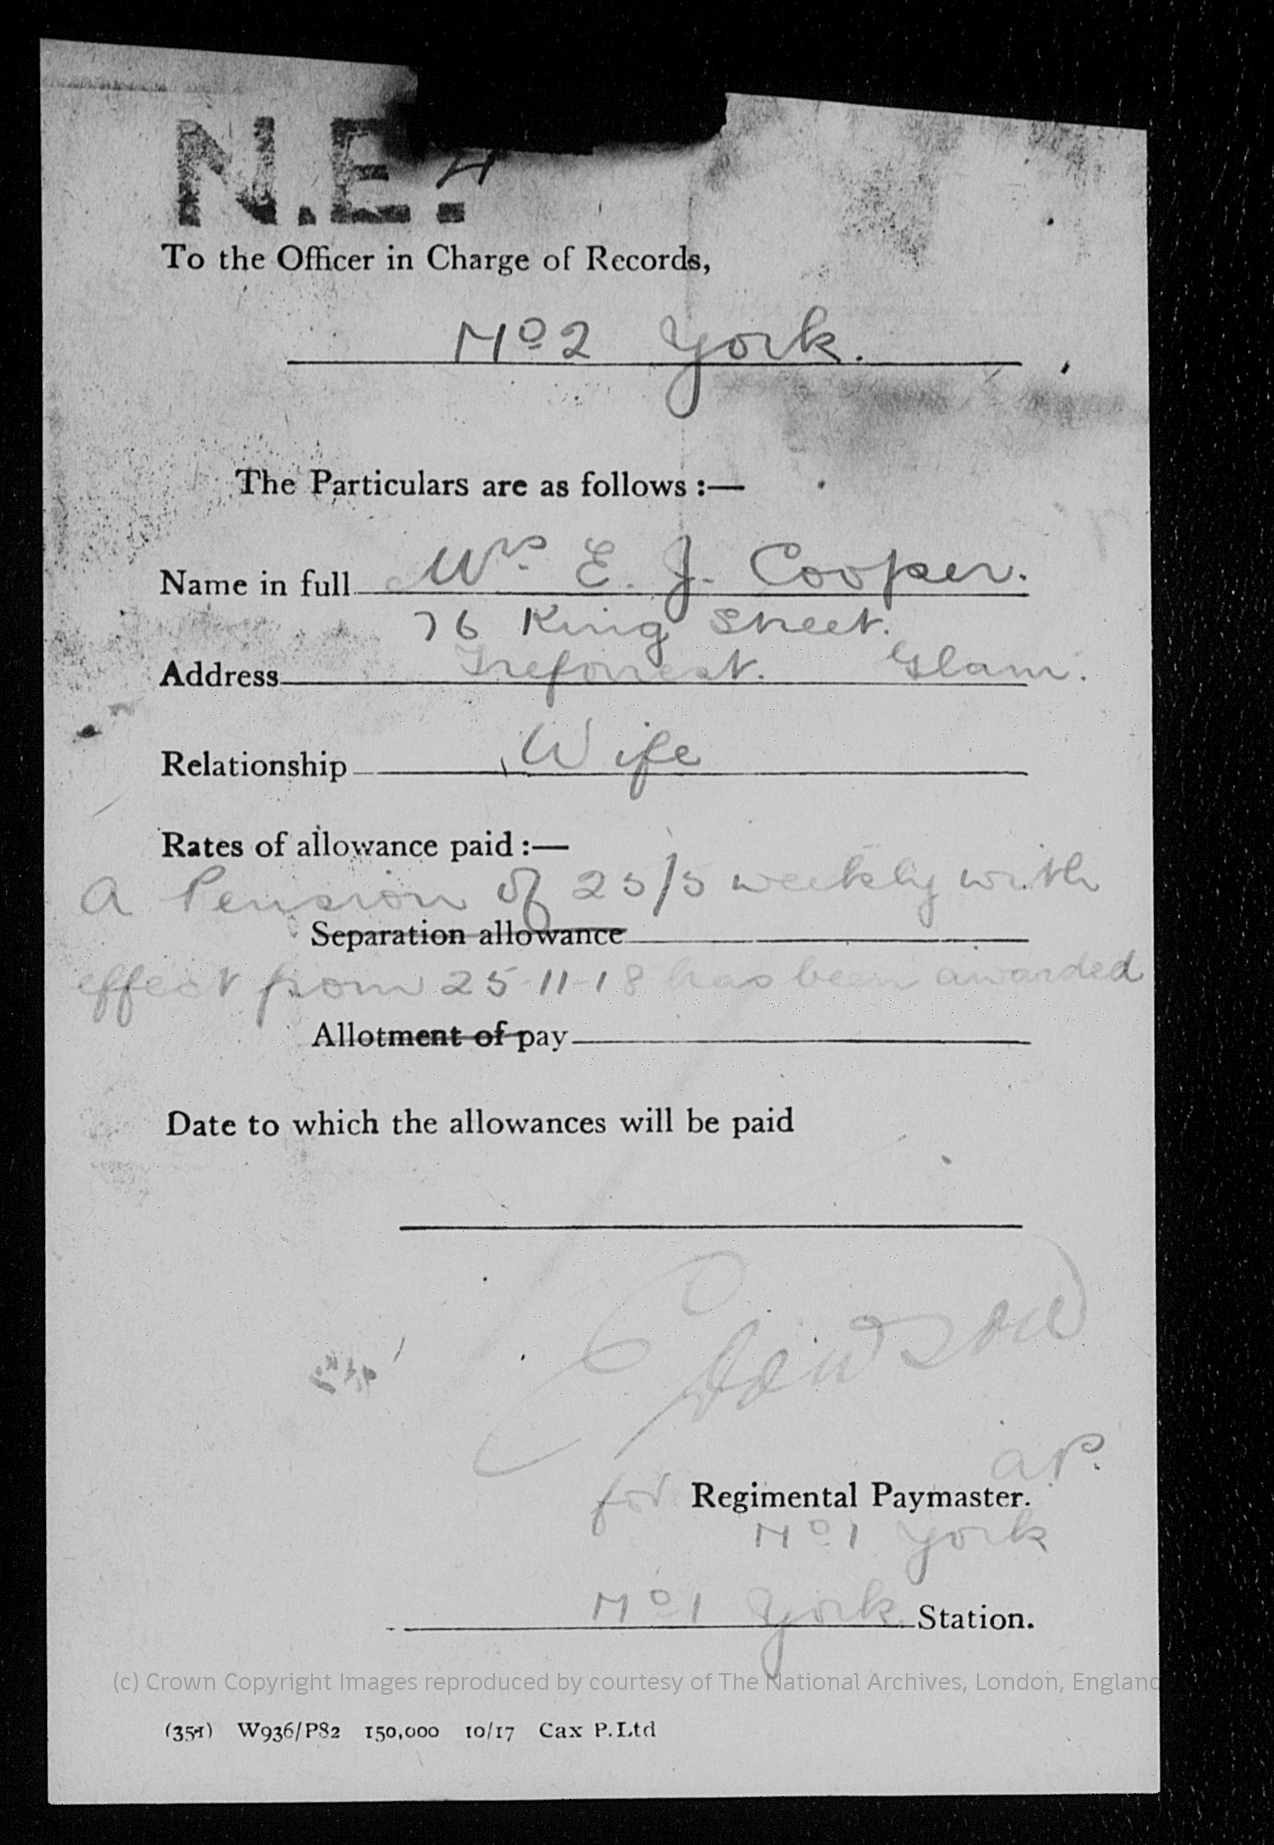 N.E.
To the Officer in Charge of Records,
No 2 York.
The Particulars are as follows :—
Name in full Mrs. E. J. Cooper.
76 King Street.
Address Treforrest. Glam.
Relationship Wife
Rates of allowance paid :—
A Pension of 25/5 weekly with
Separation allowance
effect from 25-11-18 has been awarded
Allotment of pay
Date to which the allowances will be paid
A.P.
for Regimental Paymaster.
No 1 York
No 1 York Station.
(c) Crown Copyright Images reproduced by courtesy of The National Archives, London, England
(351) W936/P82 150,000 10/17 Cax P.Ltd